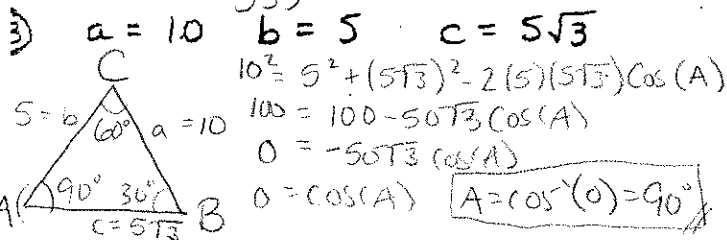 3) a = 10 b = 5 c = 5√3
10² = 5² + (5√3)² - 2(5)(5√3)Cos(A)
100 = 100 - 50√3 Cos(A)
0 = -50√3 cos(A)
0 = cos(A) A = cos⁻(0) = 90°
C
5 = b 60° a = 10
A 90° 30° B
c = 5√3